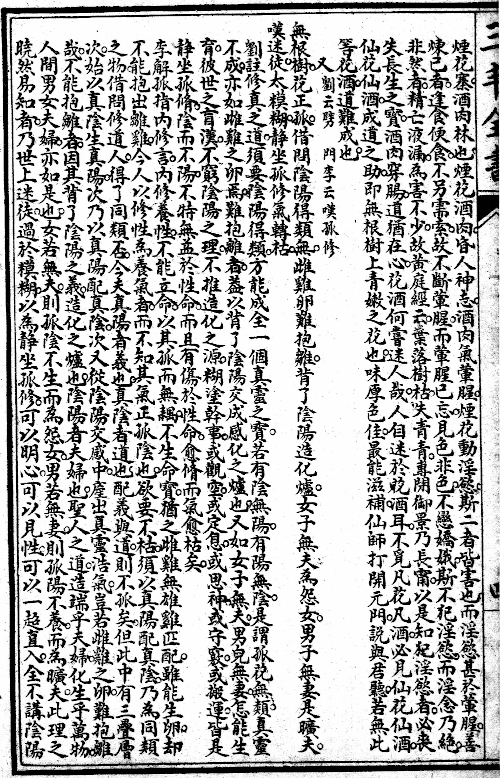 煙花寨酒肉林也煙花酒肉昏人神志酒肉氣葷腥煙花動淫慾斯二者皆害也而淫慾甚於葷腥善
煉己者逢食便食不另需索故不斷葷腥而葷腥已忘見色非色不戀嬌娥斯不犯淫慾而淫念乃絕
非然者精亡液漏為害不少故黃庭經云葉落樹枯失青青專閉御景乃長甯以是知犯淫慾者必喪
失長生之寶酒肉穿腸道猶在心花酒何嘗迷人哉人自迷於貶酒耳不覓凡花凡酒必見仙花仙酒
仙花仙酒成道之助即無根樹上青嫩之花也味厚色佳最能滋補仙師打開元門說與君聽若無此
等花酒道難成也
又 劉云劈 門 李云嘆孤修
無根樹花正孤借問陰陽得類無雌雞卵難抱雛背了陰陽造化爐女子無夫為怨女男子無妻是曠夫
嘆迷徒太模糊靜坐孤修氣轉枯
劉註修真之道須要陰陽得類方能成全一個真靈之寶若有陰無陽有陽無陰是謂孤花無類真靈
不成亦如雌雞之卵無難抱雛者蓋以背了陰陽交成感化之爐也又如女子無夫男兒無妻怎能生
育彼世之盲漢不窮陰陽之理不推造化之源糊塗幹事或觀空或定息或思神或守竅或搬運皆是
靜坐孤修陰而不陽不特無益於性命而且有傷於性命愈修而氣愈枯矣
李解孤指內修言內修養性不能立命以其孤而無耦不生命寶猶之雌雞無雄雞匹配雖能生卵却
不能抱出雛雞今人以修性為養氣者而不知其氣正孤陰也欲要不枯須以真陽配真陰乃為同類
之物借問修道人得了同類否今夫真陽者義也真陰者道也配義與道則不孤矣但此中有三疊層
次始以真陰生真陽次乃以真陽配真陰次又從陰陽交感中產出真靈浩氣豈若雌雞之卵難抱雛
哉不能抱雛者因其背了陰陽之義造化之爐也陰陽者夫婦也聖人之道造端乎夫婦化生乎萬物
人間男女夫婦亦如是也女若無夫則孤陰不生而為怨女男若無妻則孤陽不養而為曠夫此理之
曉然易知者乃世上迷徒過於模糊以為靜坐孤修可以明心可以見性可以一超直入全不講陰陽